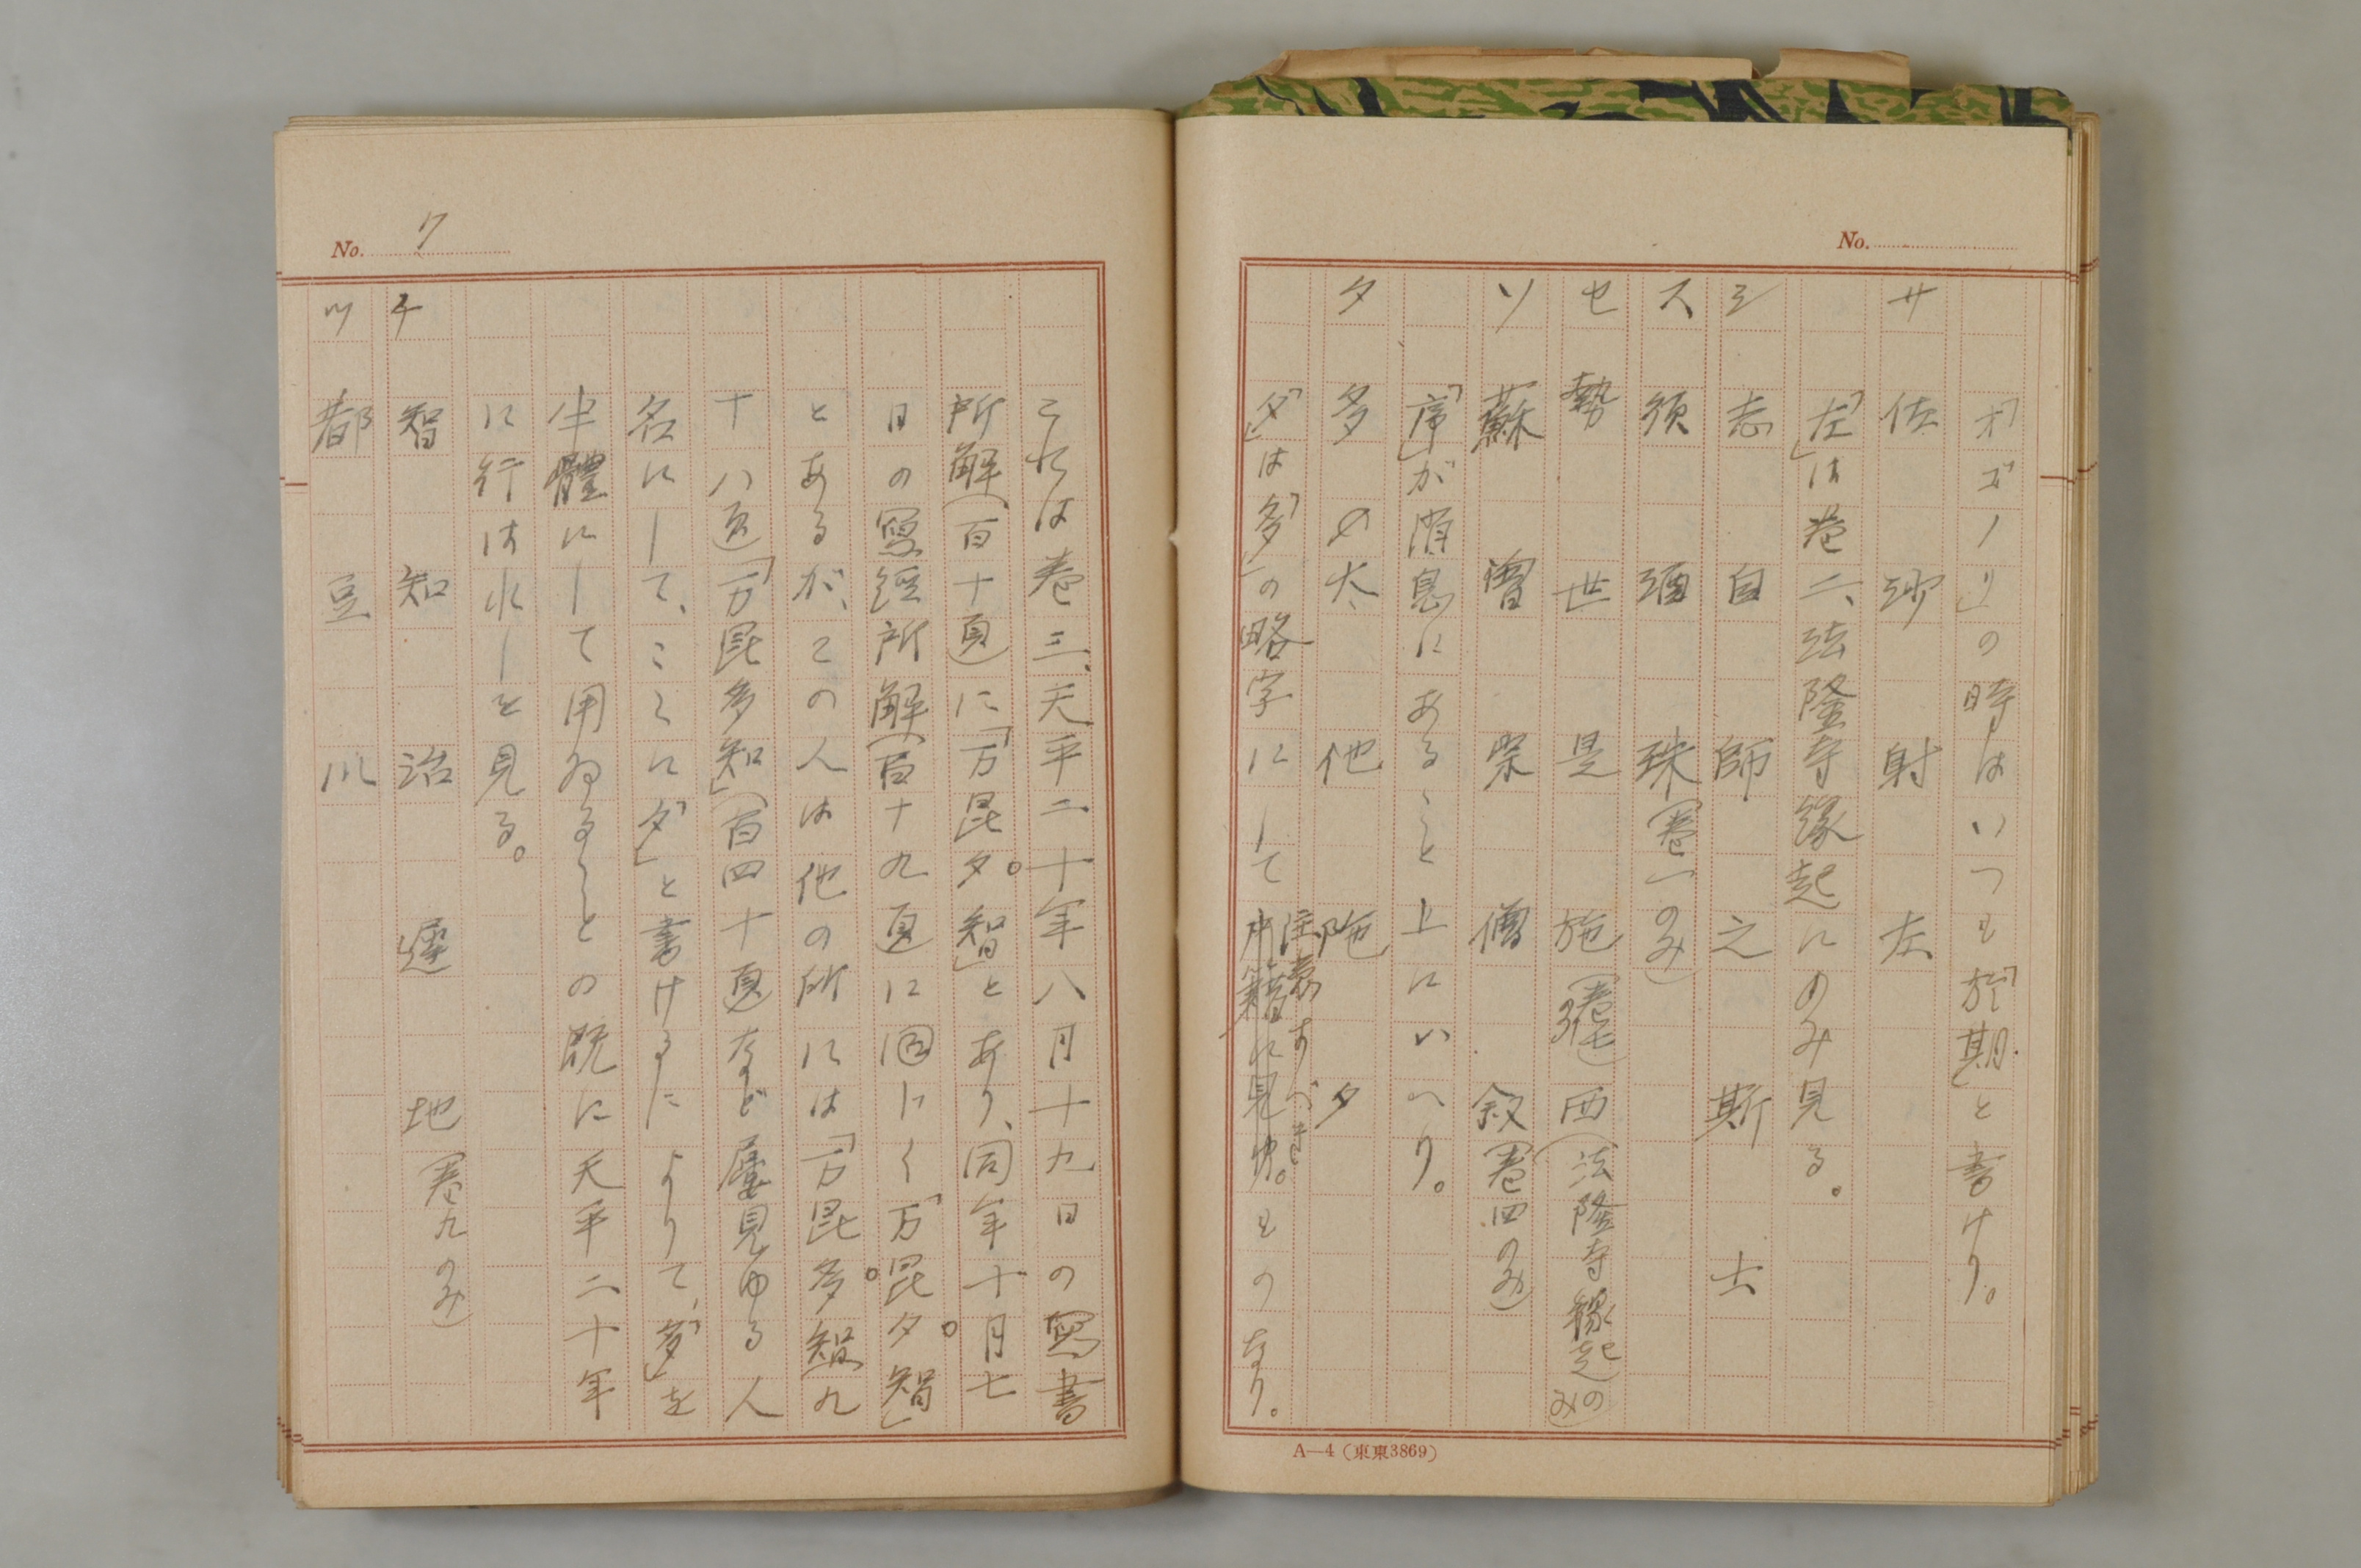 No.
「オゴノリ」の時はいつも「於期」と書けり。
サ　佐　沙　射　左
「左」は巻二、法隆寺縁起にのみ見る。
シ　志　自　師　之　斯　士
ス　須　酒　珠（巻一のみ）
セ　勢　世　是　施（巻七）　西（法隆寺縁起のみ）
ソ　蘇　曽　宗　僧　叙（巻四のみ）
「序」が消息にあること上にいへり。
タ　多　太　他　陁　タ
「タ」は「多」の略字にして注意すべきものなり。
A—4（東東3869）
No. 7
これは巻三、天平二十年八月十九日の寫書
所解（百十頁）に「万昆タ智」とあり、同年十月七
日の寫經所解（百十九頁）に同じく「万昆タ智」
とあるが、この人は他の所には「万昆多智」九
十八頁「万昆多知」（百四十頁）など屡見ゆる人
名にして、こゝに「タ」と書けるによりて、「多」を
半體にして用ゐることの既に天平二十年
に行はれしを見る。
チ　智　知　治　遲　地（巻九のみ）
ツ　都　豆　川